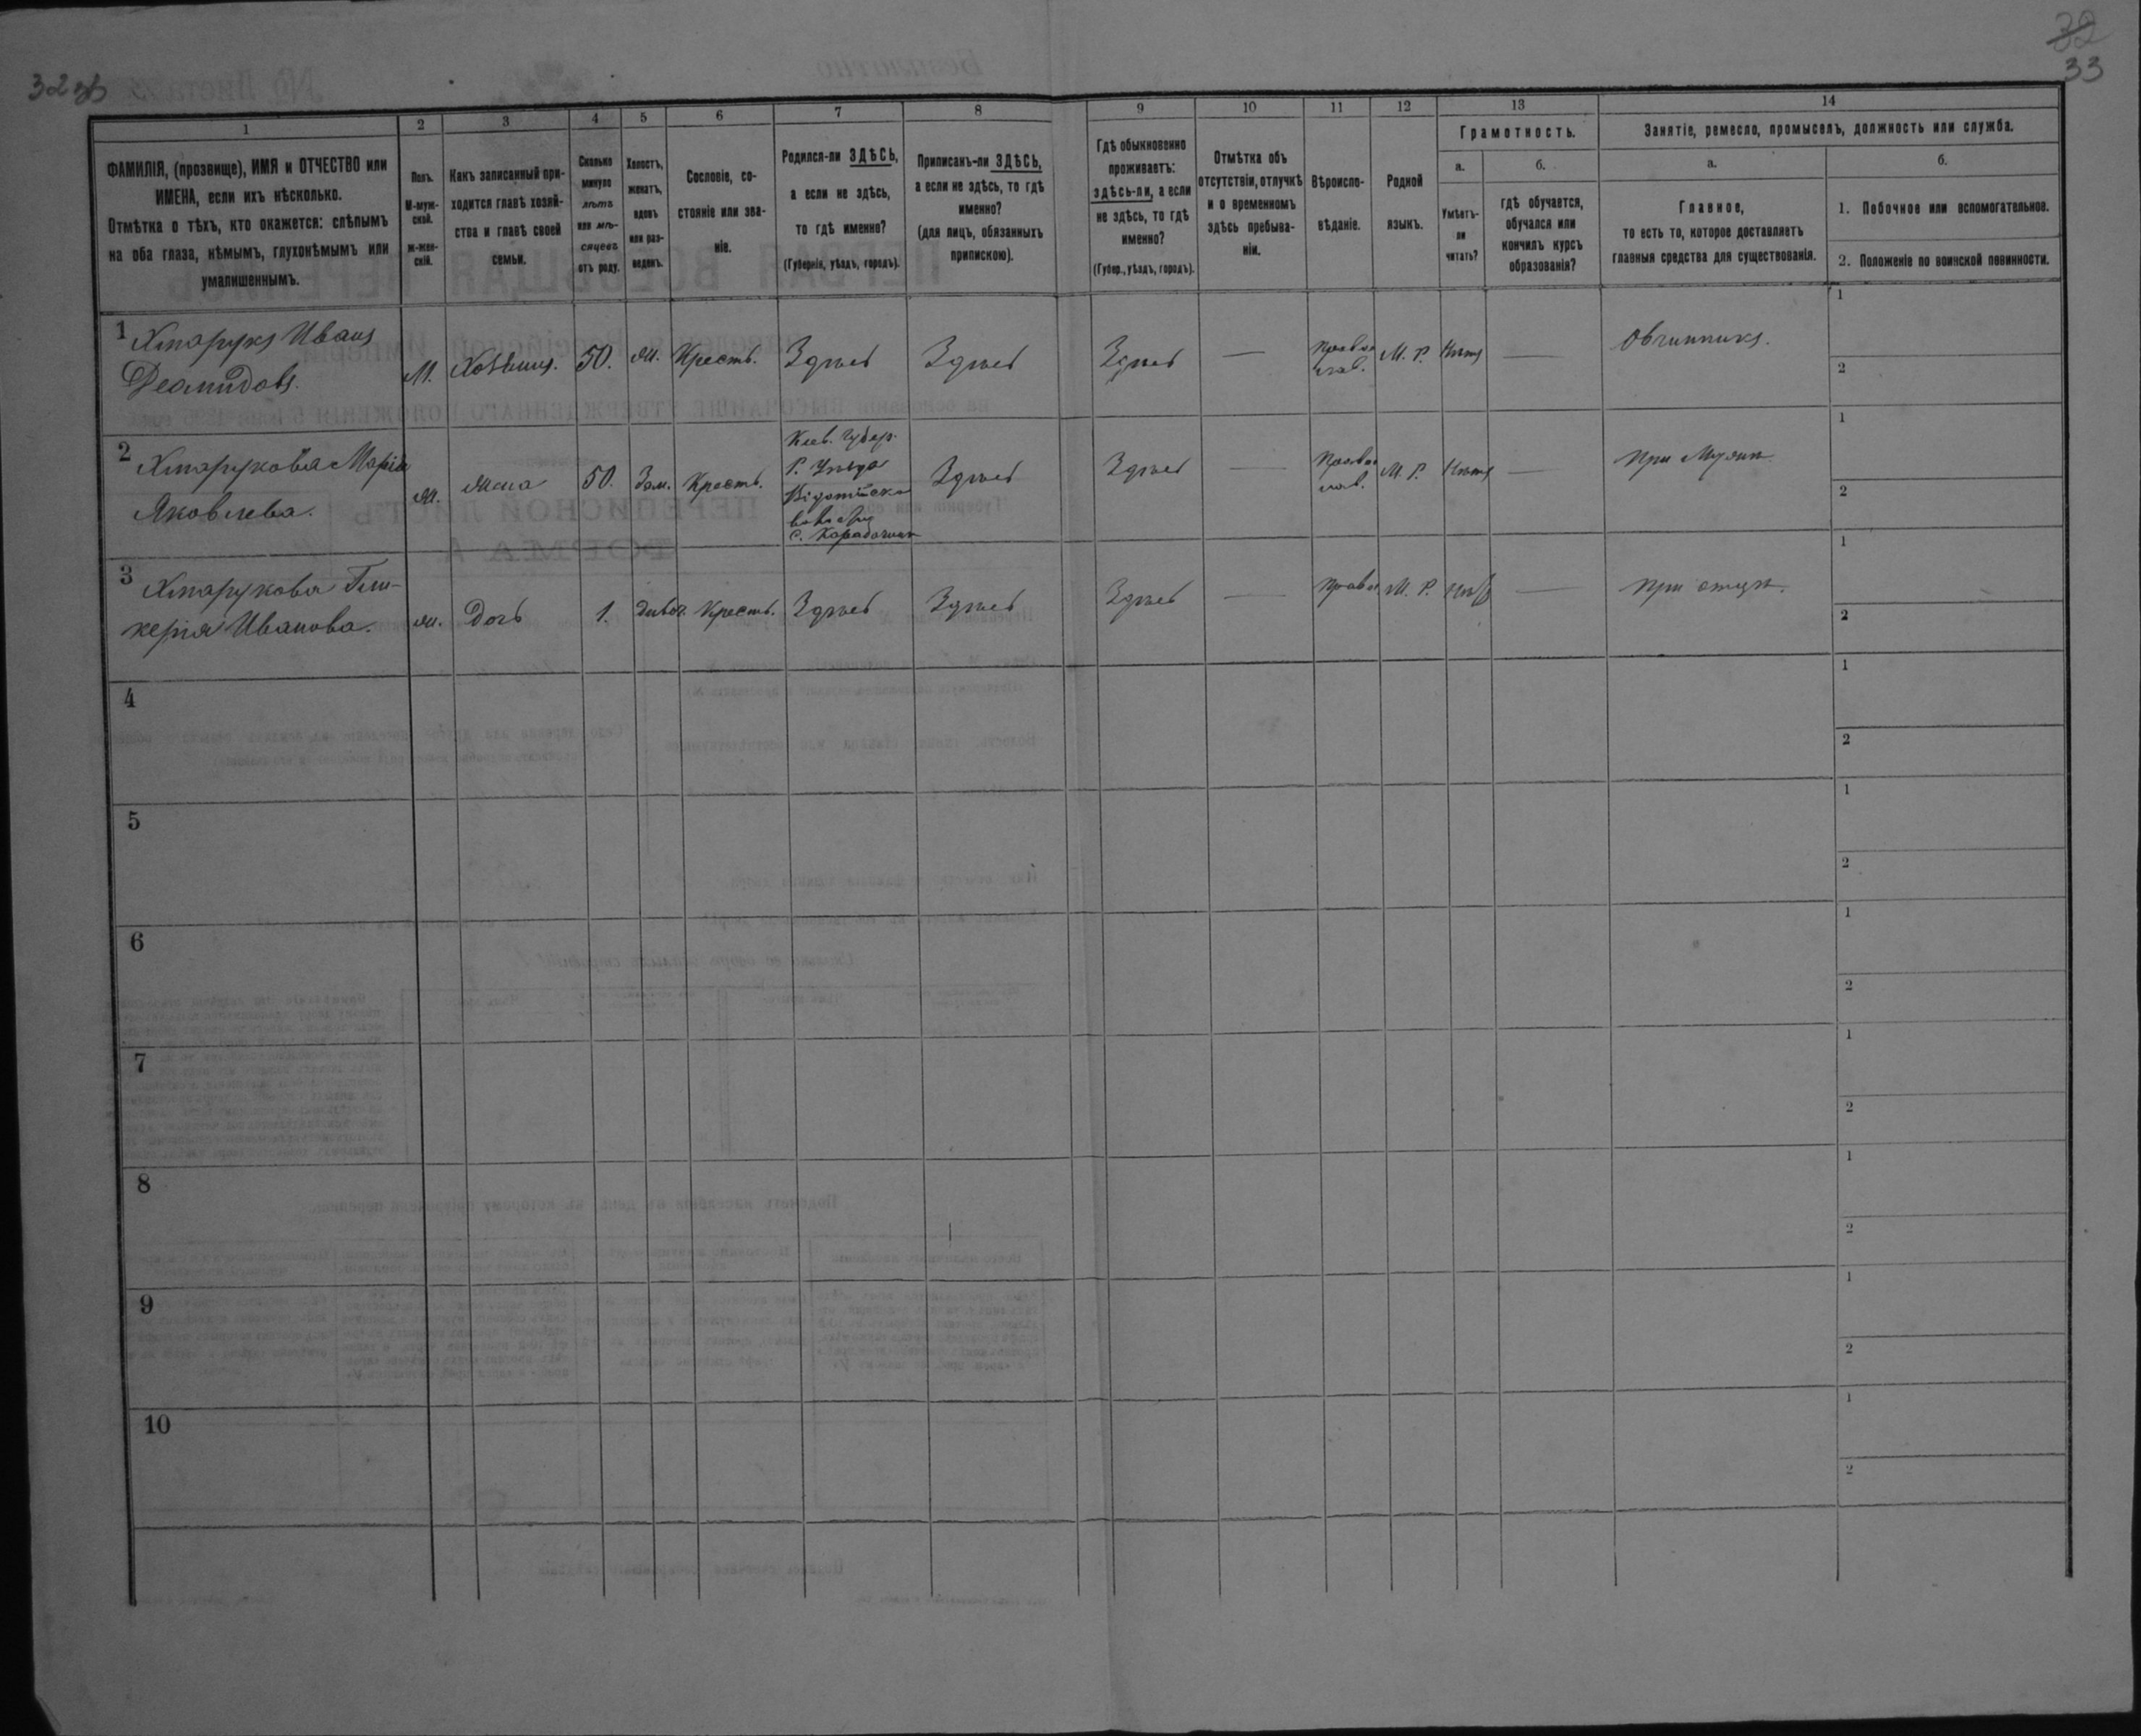 32 об
32
33
1
2
3
4
5
6
7
8
9
10
11
12
13
14
ФАМИЛІЯ, (прозвище), ИМЯ и ОТЧЕСТВО или
ИМЕНА, если ихъ нѣсколько.
Отмѣтка о тѣхъ, кто окажется: слѣпымъ
на оба глаза, нѣмымъ, глухонѣмымъ или
умалишеннымъ.
Полъ.
М-муж-
ской.
ж-жен-
скій.
Какъ записанный при-
ходится главѣ хозяй-
ства и главѣ своей
семьи.
Сколько
минуло
лѣтъ
или мѣ-
сяцевъ
отъ роду.
Холостъ,
женатъ,
вдовъ
или раз-
веденъ.
Сословіе, со-
стояніе или зва-
ніе.
Родился-ли ЗДѢСЬ,
а если не здѣсь,
то гдѣ именно?
(Губернія, уѣздъ, городъ).
Приписанъ-ли ЗДѢСЬ,
а если не здѣсь, то гдѣ
именно?
(для лицъ, обязанныхъ
припискою).
Гдѣ обыкновенно
проживаетъ:
здѣсь-ли, а если
не здѣсь, то гдѣ
именно?
(Губер., уѣздъ, городъ).
Отмѣтка объ
отсутствіи, отлучкѣ
и о временномъ
здѣсь пребыва-
ніи.
Вѣроиспо-
вѣданіе.
Родной
языкъ.
Грамотность.
а.
Умѣетъ-
ли
читать?
б.
гдѣ обучается,
обучался или
кончилъ курсъ
образованія?
Занятіе, ремесло, промыселъ, должность или служба.
а.
Главное,
то есть то, которое доставляетъ
главныя средства для существованія.
б.
1. Побочное или вспомогательное.
2. Положеніе по воинской повинности.
1 Хмарукъ Иванъ
Демидовъ. М. Хозяинъ. 50. ж. Крестъ. Здѣсь Здѣсь Здѣсь — Правос
лав. М. Р. Нѣтъ — Овчинникъ.
1
2
2 Хмарукова Марія
Яковлева. ж. Жена 50. Зам. Крестъ. Кіев. Губер.
Р. Уѣзда
волости
Здѣсь Здѣсь — Правос
лав. М. Р. Нѣтъ — при Мужѣ.
1
2
3 Хмарукова Гли-
керія Иванова. ж. Дочь 1. дѣвоч. Крестъ. Здѣсь Здѣсь Здѣсь — Правос М. Р. Нѣтъ — при отцѣ.
1
2
4
1
2
5
1
2
6
1
2
7
1
2
8
1
2
9
1
2
10
1
2